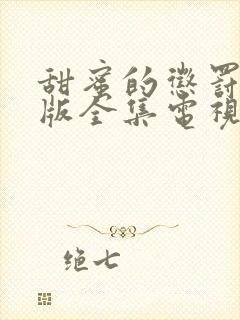 甜蜜的懲罰
版全集電視
绝七